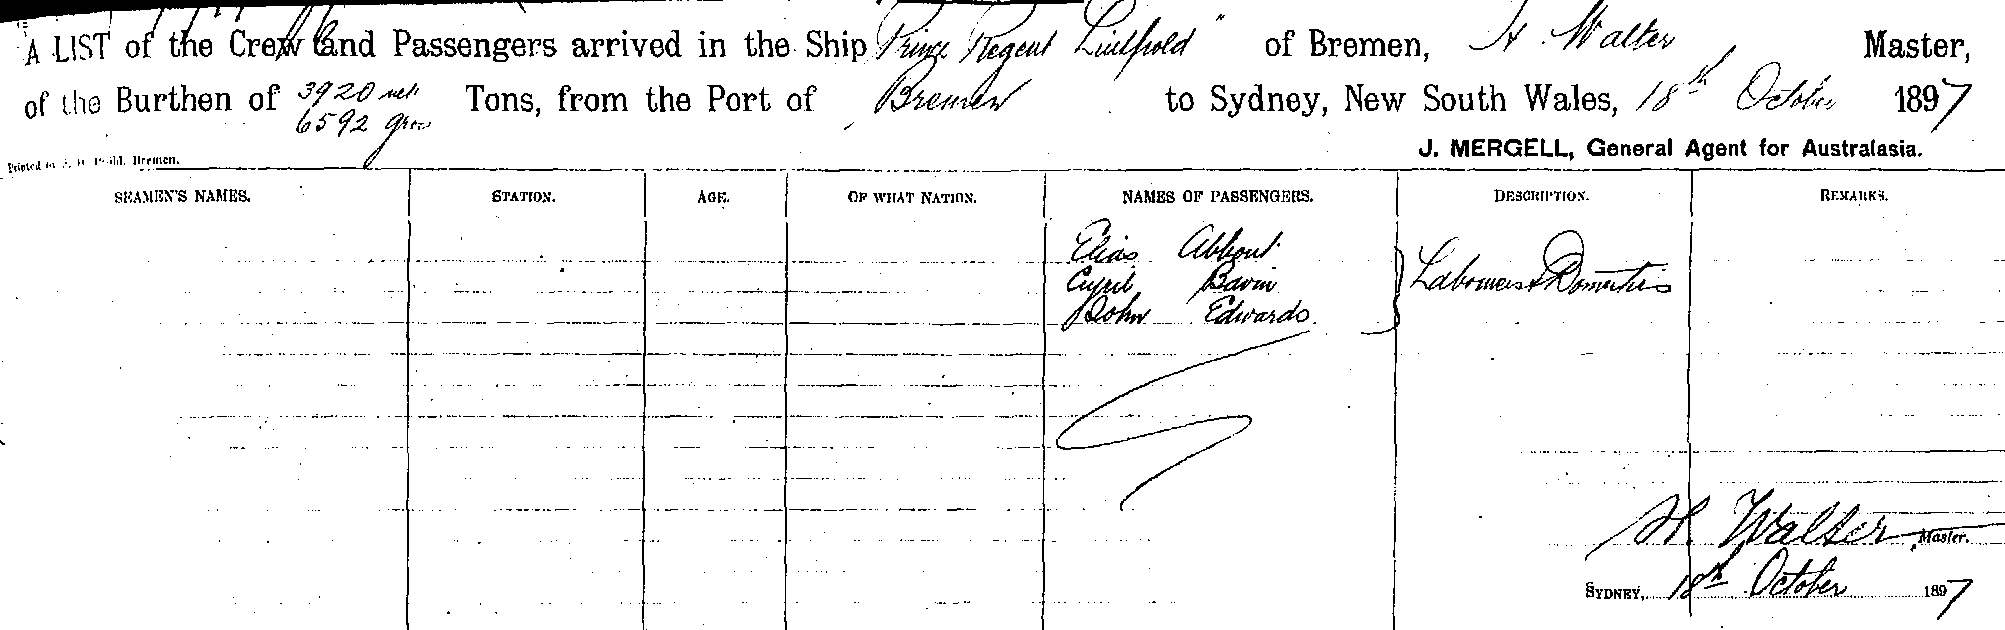 A LIST of the Crew and Passengers arrived in the Ship Prince Regent Luitpold" of Bremen, H. Walter Master,
of the Burthen of 3920 net Tons, from the Port of Bremen to Sydney, New South Wales, 18th October 1897
6592 gross
J. MERGELL, General Agent for Australasia.
Printed Bremen.
SEAMEN'S NAMES. STATION. AGE. OF WHAT NATION. NAMES OF PASSENGERS. DESCRIPTION. REMARKS.
Elias Abbout
Cyril Bavin Labourers & Domestics
John Edwards
H. Walter Master.
SYDNEY, 18th October 1897